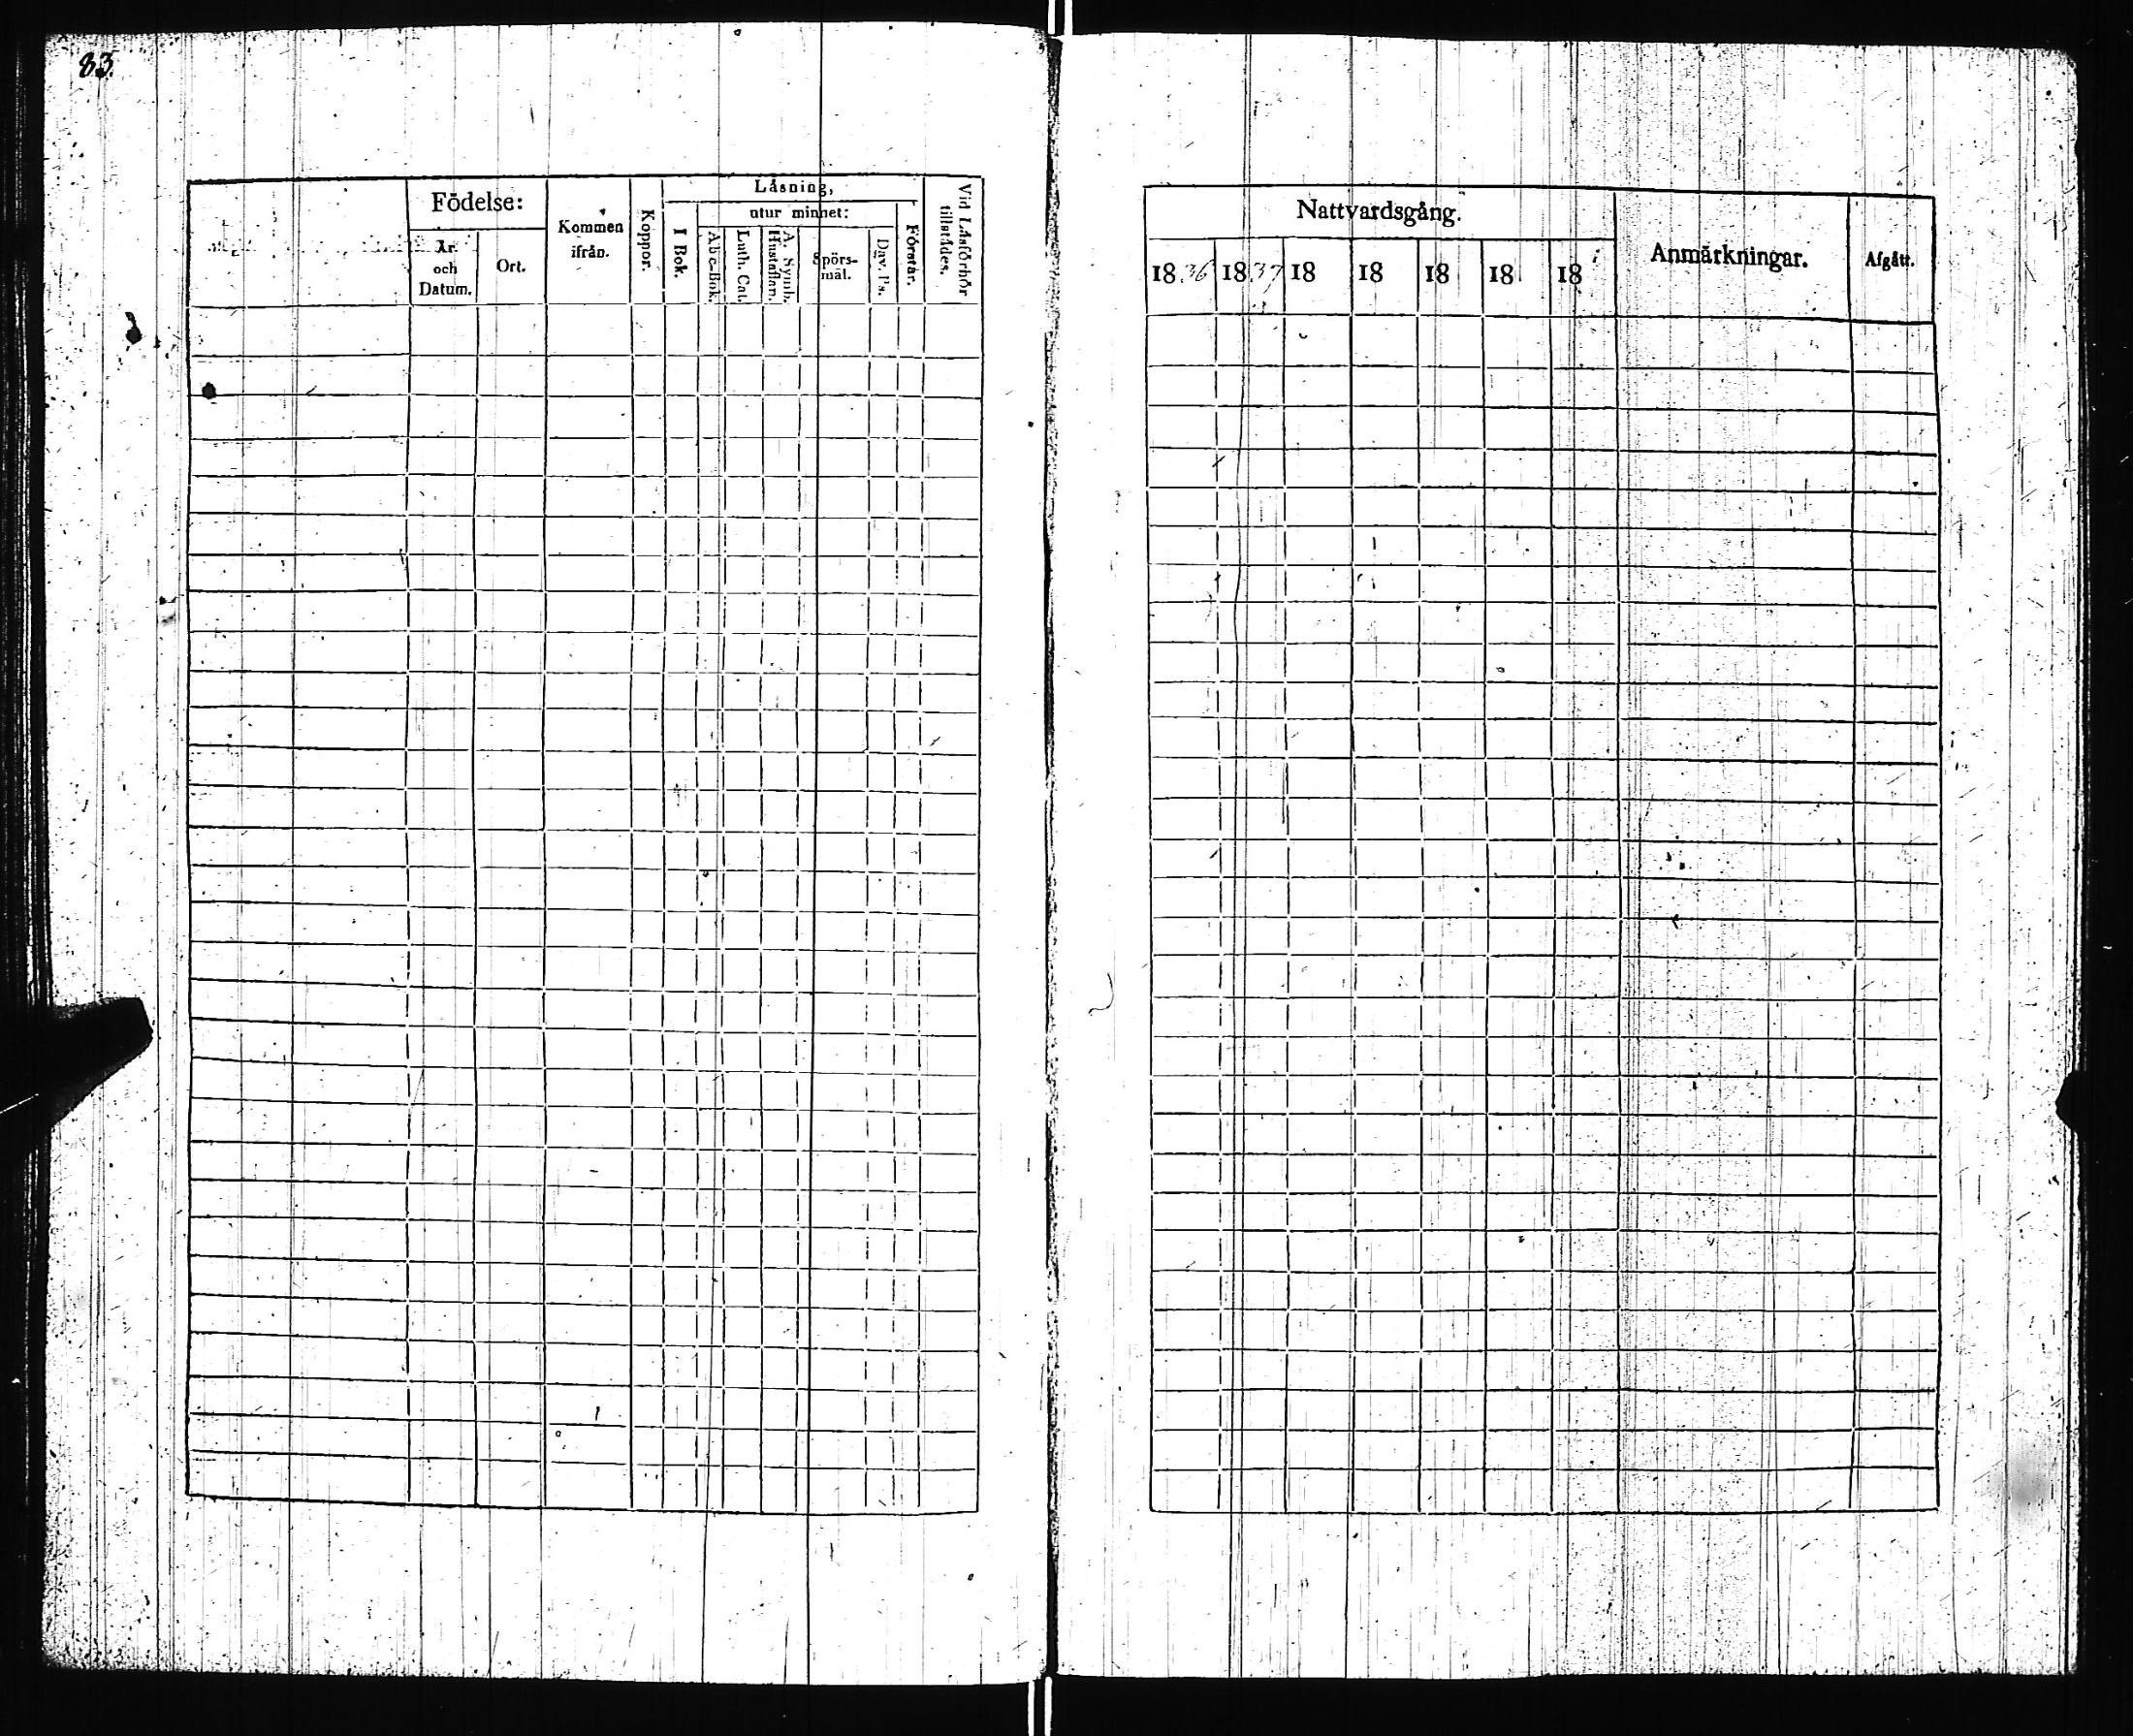 83.
Födelse:
År och Datum.
Ort.
Kommen ifrån.
Koppor.
Läsning,
I Bok.
utur minnet:
Abc-Bok.
Luth. Cat.
A. Symb. Hustaflan.
Spörs-
mål.
Dav. Ps.
Förstår.
Vid Läsförhör
tillstädes.
Nattvardsgång.
1836 1837 18 18 18 18 18
Anmärkningar.
Afgått.